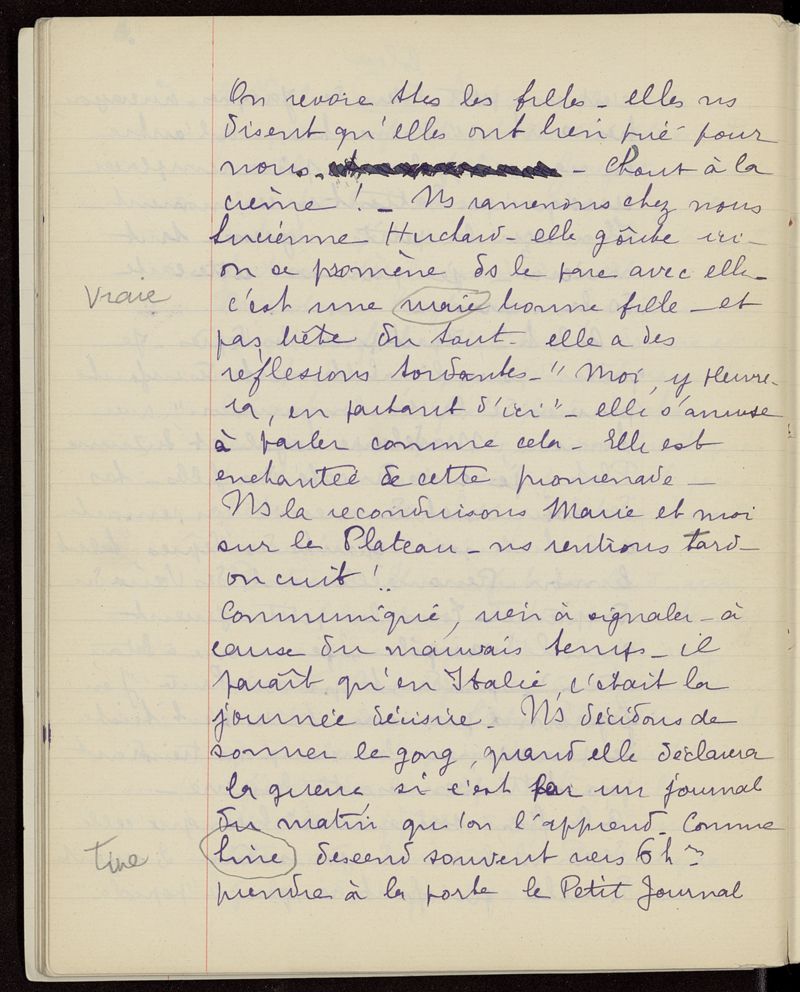 On revoie ttes les filles - elles ns
disent qu'elles ont bien prié pour
nous. - Chout à la
crème ! - Ns ramenons chez nous
Lucienne Huchard - elle goûte ici -
on se promène ds le parc avec elle -
Vraie c'est une vraie bonne fille - et
pas bête du tout - elle a des
réflexions tordantes - " Moi, y
en partant d'ici " - elle s'amuse
à parler comme cela - Elle est
enchantée de cette promenade -
Ns la reconduisons Marie et moi
sur le Plateau - ns rentrons tard -
on cuit !..
Communiqué, rien à signaler - à
cause du mauvais temps - il
paraît qu'en Italie, c'était la
journée décisive - Ns décidons de
sonner le gong, quand elle déclarera
la guerre, si c'est par un journal
du matin qu'on l'apprend - Comme
Tine Tine descend souvent vers 6 h
prendre à la porte le Petit Journal